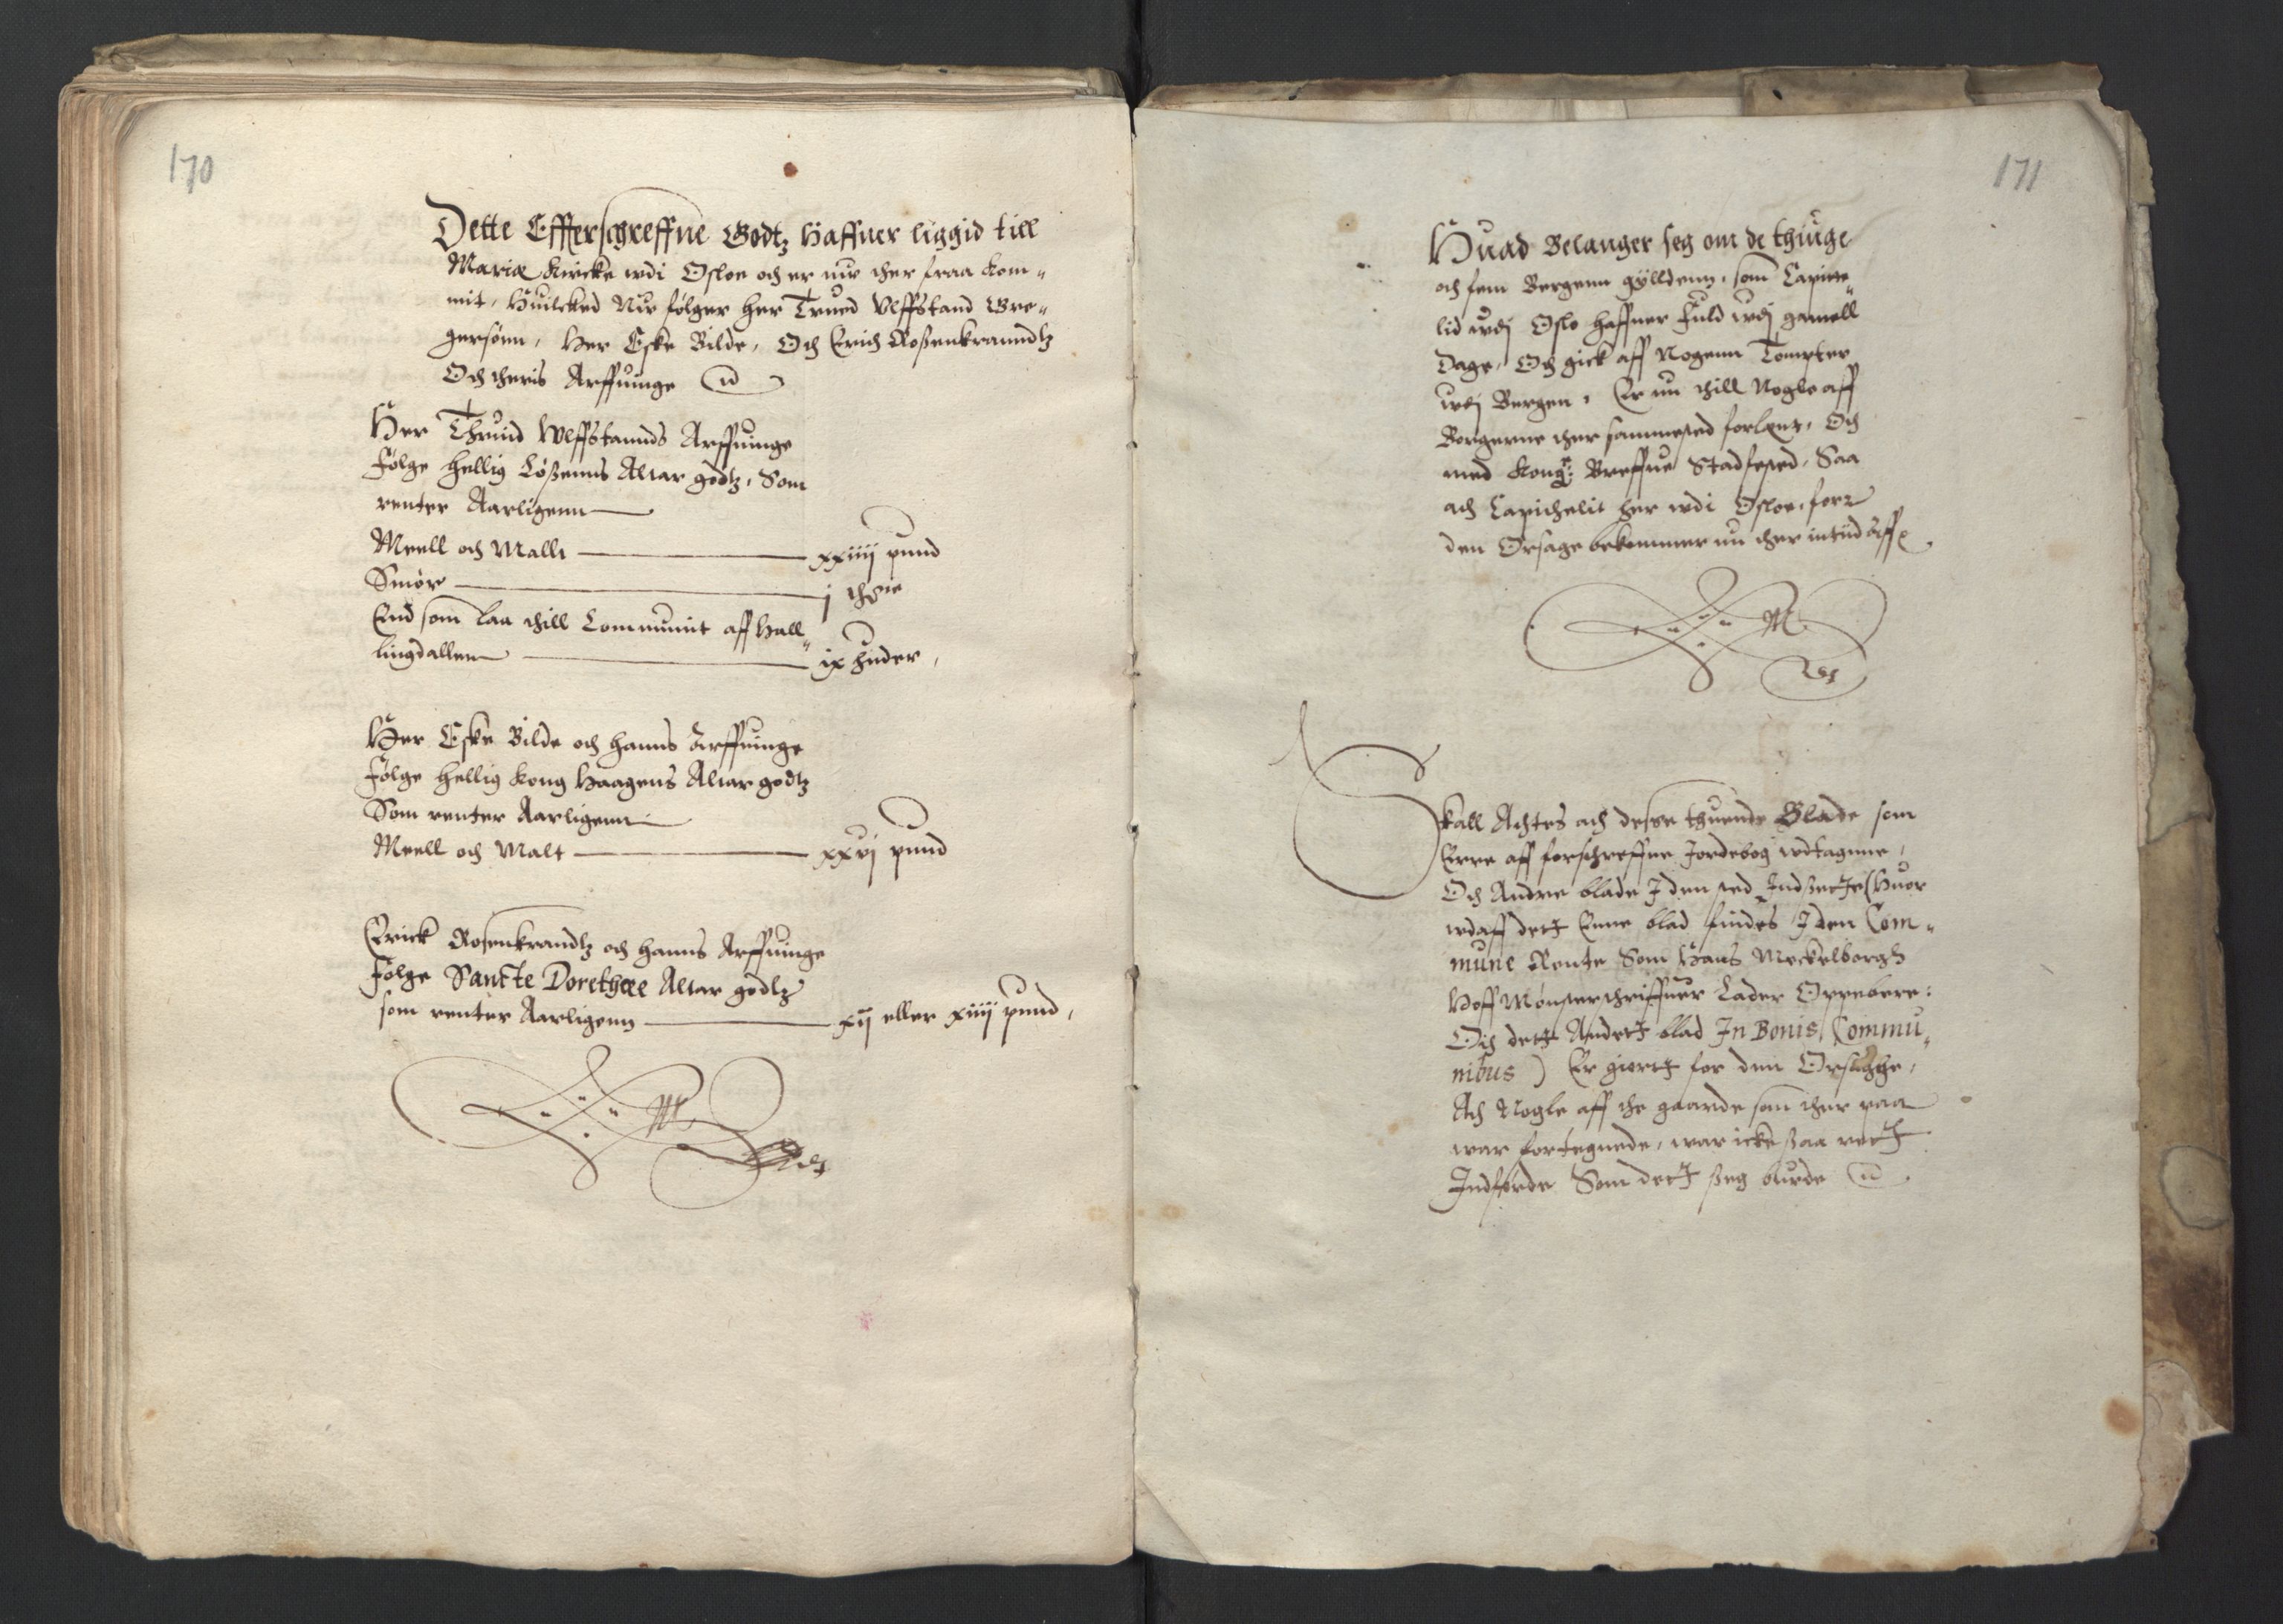 170
Dette Effterschreffne Godtz Haffuer liggid till
Mariæ Kircke wdi Osloe och er nw ther fraa kom„
mit, Huilcked Nw følger her Trued Vlffstand Gre„
gersønn, Her Eske Bilde, Och Erich Roßenkranndtz
Och theris Arffuinge
Her Thruid Wlffstannds Arffuinge
Følge hellig Løßenns Altar godtz, Som
renter Aarligenn
Meell och Mallt xxiiij pund
Smør j
End som laa thill Communit aff Hall„
lingdallen ix huder,
Her Eske Bilde och hanns Arffuinge
Følge hellig Kong Haagens Altar godtz
Som renter Aarligenn
Meell och Malt xxvj pund
Erick Rosenkrandtz och hanns Arffuinge
Følge Sancte Dorethææ Altar godtz
som renter Aarligenn xij eller xiiij pund,
171
Huad Belanger seg om de thiuge
och fem Bergenn gylldenn, som Capitte„
lid wdj Oslo haffuer fuld wdj gamell
Dage, Och gick aff Nogenn Tompter
wdj Bergen, Er nu thill Nogle aff
Borgerne ther sammested forlent, Och
med Kong: Breffue Stadfested, Saa
ath Capithelit her wdi Osloe, forr
den Orsage bekommer nu ther intiid aff
Skall Achtes ath desse thuende Blade som
Erre aff forschreffne Jordebog wdtagnne,
Och Andre blade J den sted Indßette (Huor
wdaff dett Enne blad findes J den Com„
mune Rente Som Hans Meckelborgh
Hoff Mønsterschriffuer Lader Oppebere:
Och dett Andett blad In Bonis Commu„
nibus) Er giortt for den Orsaghe,
Ath Nogle aff the gaarde som ther paa
war fortegnede, war icke ßaa rett
Indførde Som dett ßeg burde